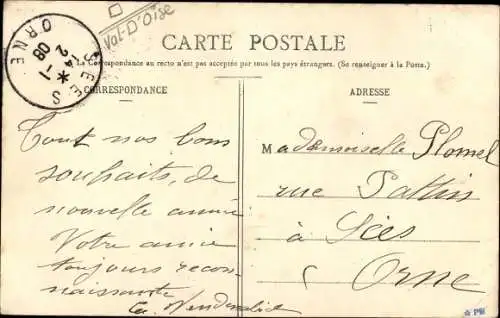 Val-D'Oise
SEES
2 - 1
08
ORNE
CARTE POSTALE
La Correspondance au recto n'est pas acceptée par tous les pays étrangers. (Se renseigner à la Poste.)
CORRESPONDANCE
Tout nos bons
souhaits, de
nouvelle année
Votre amie
toujours recon-
naissante
ADRESSE
Mademoiselle Plomel
rue
à Sées
Orne